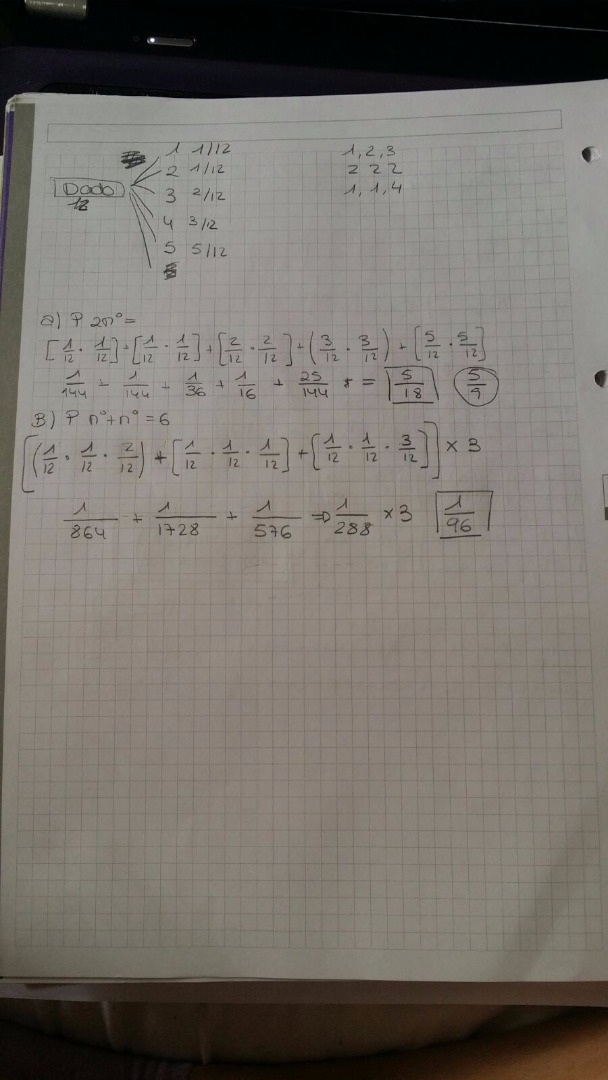 1 1/12
2 1/12
Dado 3 2/12
12
4 3/12
5 5/12
1,2,3
2 2 2
1, 1, 4
a) P 2nº=
[1/12 · 1/12] + [1/12 · 1/12] + [2/12 · 2/12] + (3/12 · 3/12) + [5/12 · 5/12]
1/144 + 1/144 + 1/36 + 1/16 + 25/144 = 5/18 5/9
B) P nº+nº=6
[(1/12 · 1/12 · 2/12) + [1/12 · 1/12 · 1/12] + [1/12 · 1/12 · 3/12]] × 3
1/864 + 1/1728 + 1/576 ⇒ 1/288 × 3 1/96